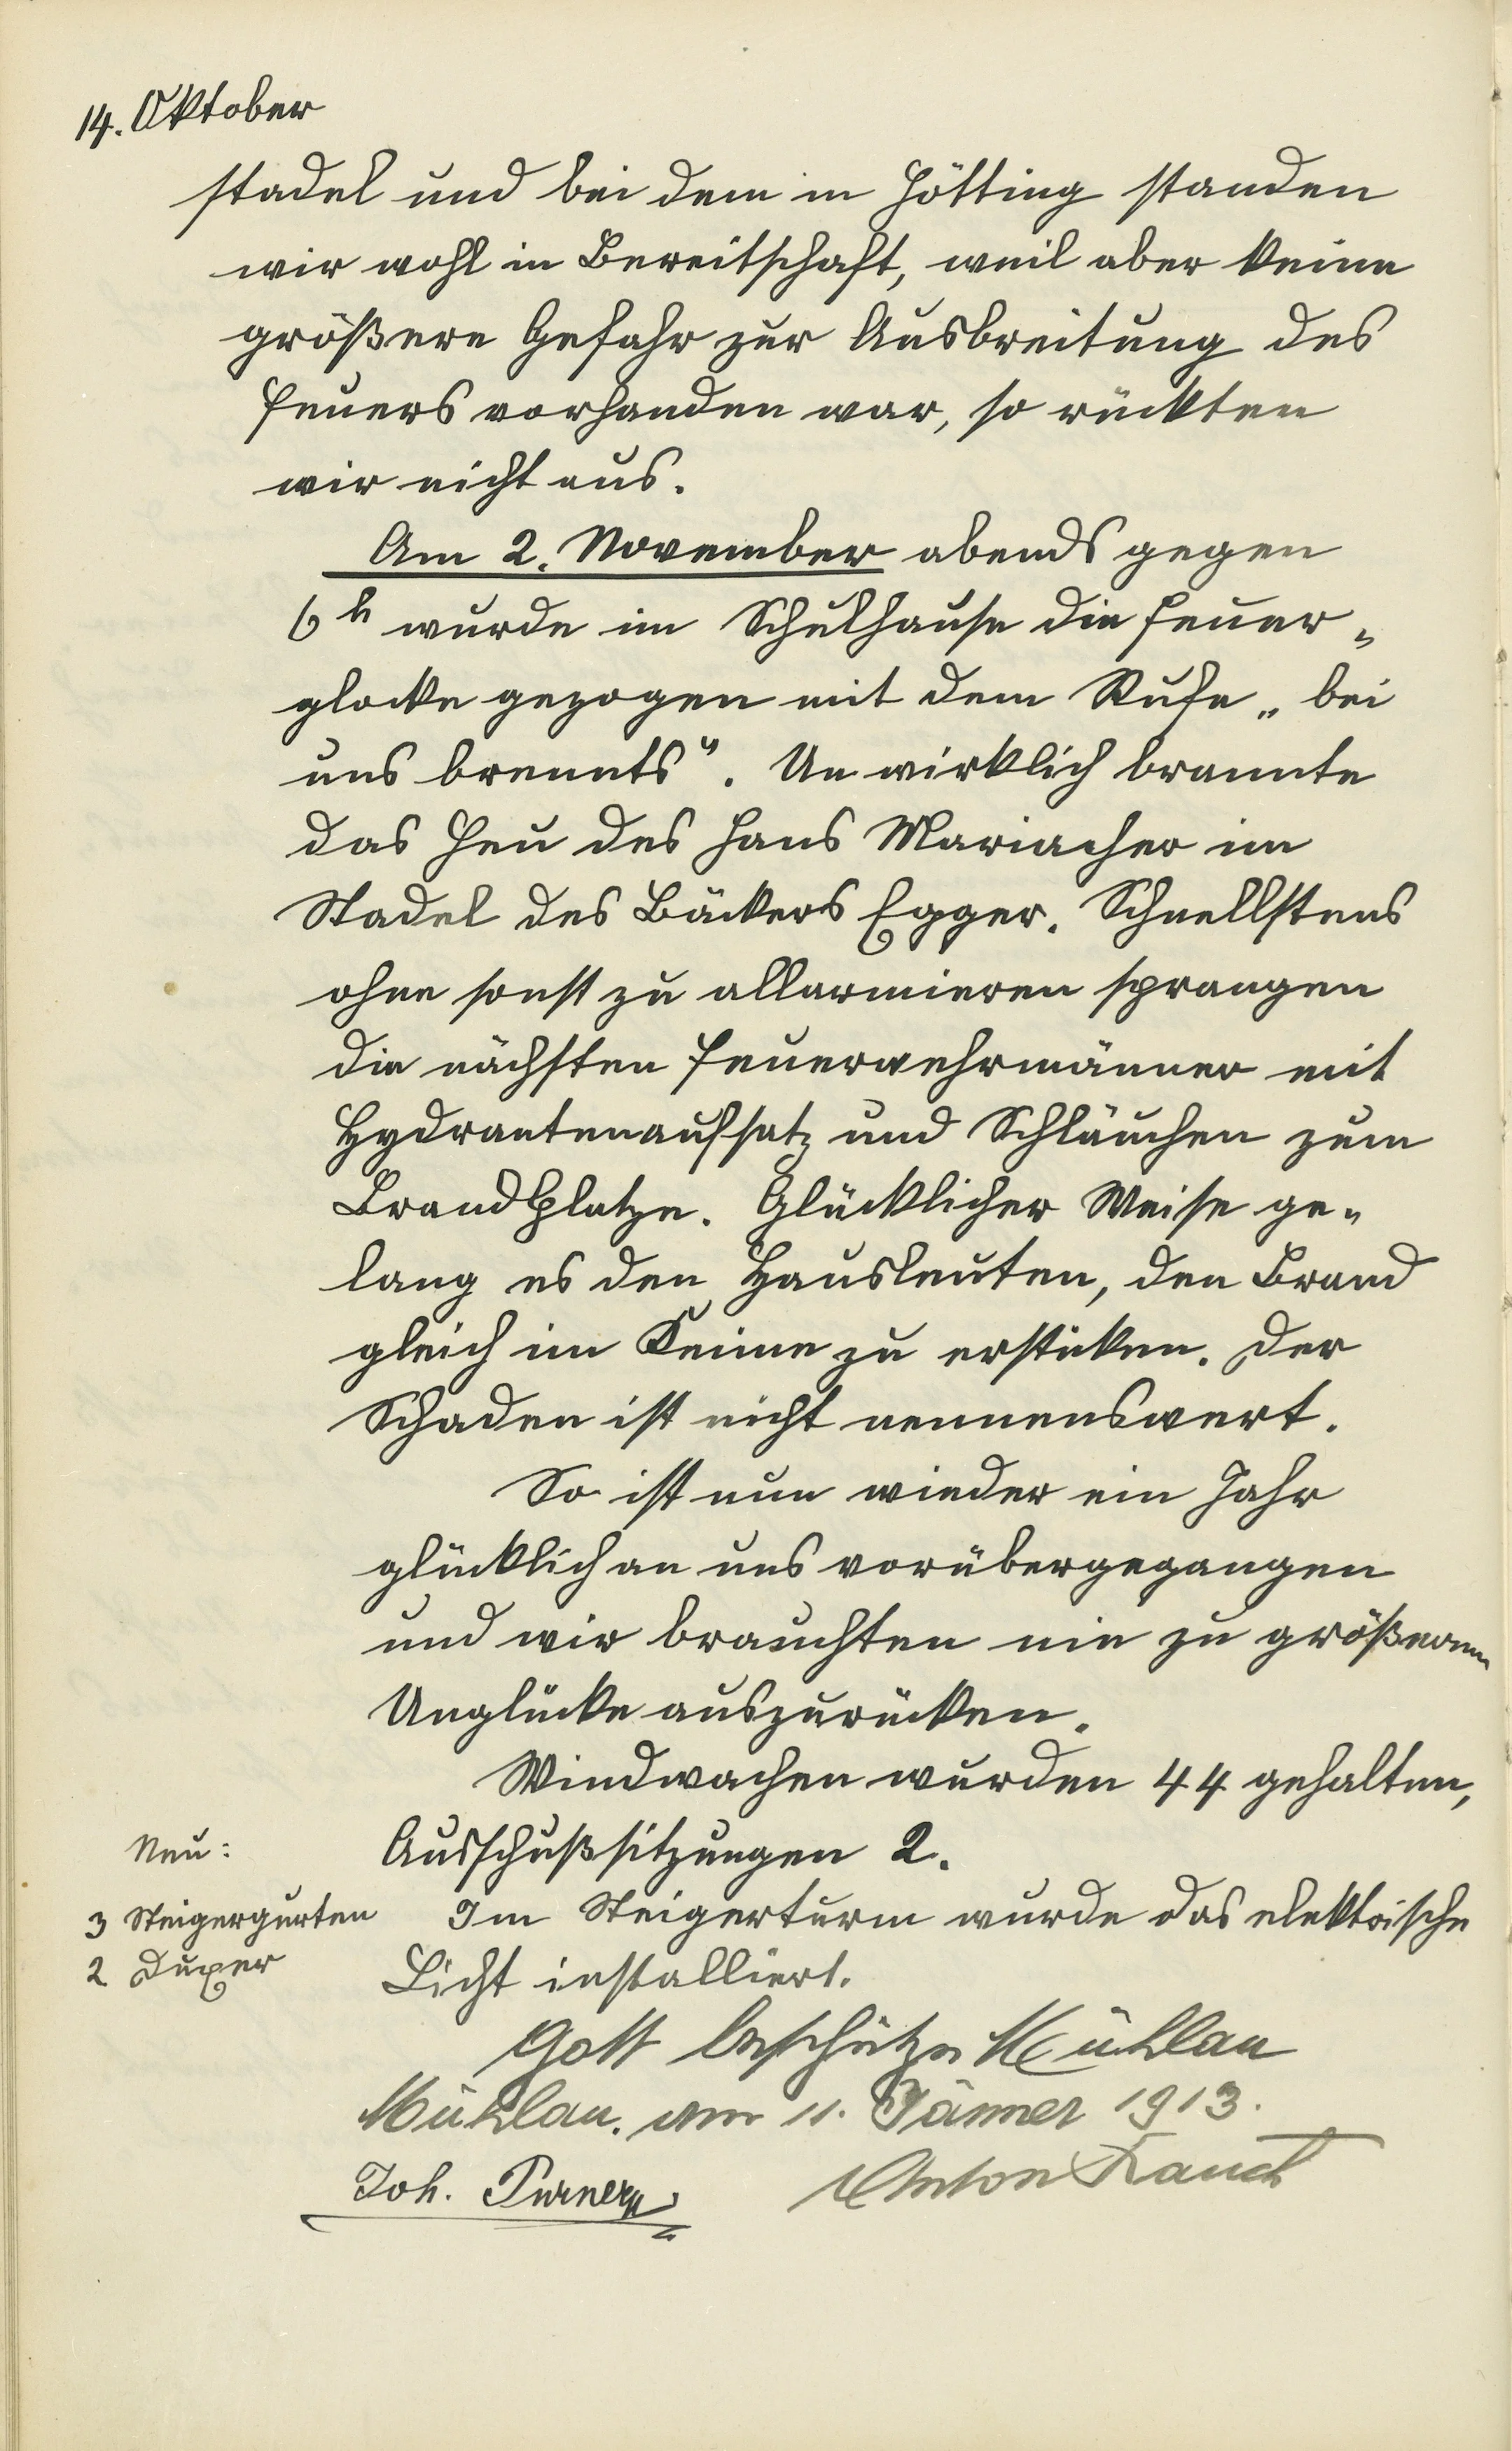 14. Oktober
stadel und bei dem in Hötting standen
wir wohl in Bereitschaft, weil aber keine
größere Gefahr zur Ausbreitung des
Feuers vorhanden war, so rückten
wir nicht aus.
Am 2. November abends gegen
6h wurde im Schulhause die Feuer„
glocke gezogen mit dem Rufe „bei
uns brennts". Un wirklich brannte
das Heu des Hans Mariacher im
Stadel des Bäckers Egger. Schnellstens
ohne sonst zu allarmieren sprangen
die nächsten Feuerwehrmänner mit
Hydrantenaufsatz und Schläuchen zum
Brandplatze. Glücklicher Weise ge„
lang es den Hausleuten, den Brand
gleich im Keime zu ersticken. Der
Schaden ist nicht nennenswert.
So ist nun wieder ein Jahr
glücklich an uns vorübergegangen
und wir brauchten nie zu größerem
Unglücke auszurücken.
Windwachen wurden 44 gehalten,
Ausschußsitzungen 2.
Neu:
3 Steigergurten
2 Duxer
Im Steigerturm wurde das elektrische
Licht installiert.
Gott beschütze Mühlau
Mühlau. am 11. Jänner 1913.
Joh. Purner
Anton Rauch